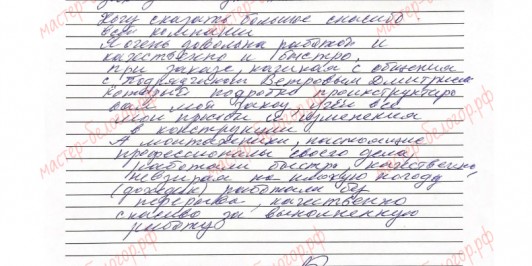 Хочу сказать большое спасибо
всей компании
Я очень довольна работой и
качественно и быстро,
при заказе, начиная с общения
с Подрядчиком Ветровым Дмитрием
который подробно проинструктиро
вал мой заказ, учёл все
мои просьбы и изменения
в конструкции
А монтажники, настоящие
профессионалы своего дела
работали быстро, качественно,
невзирая на плохую погоду
(дождик) работали без
перерыва, качественно
спасибо за выполненную
работу
мастер-белогор.рф